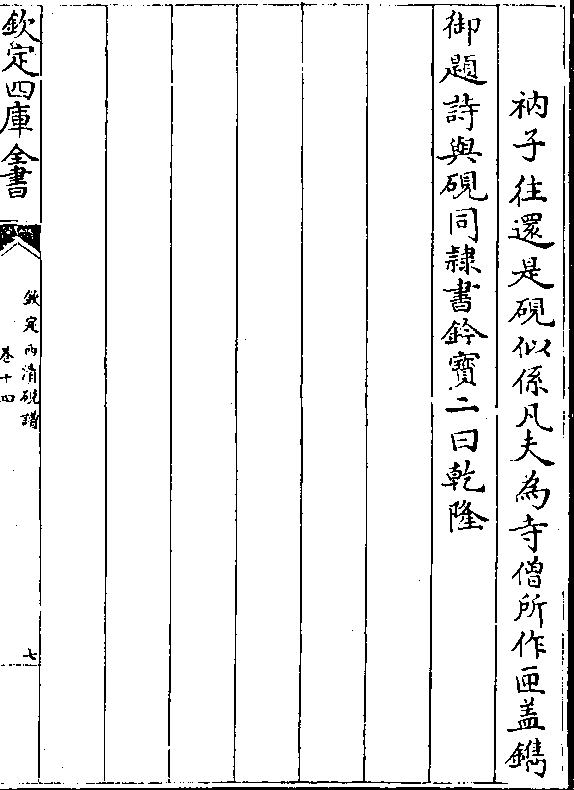 衲子往還是硯似係凡夫為寺僧所作匣盖鐫
御題詩與硯同隸書鈐寶二曰乾隆
欽定四庫全書
欽定西清硯譜
卷十四
七